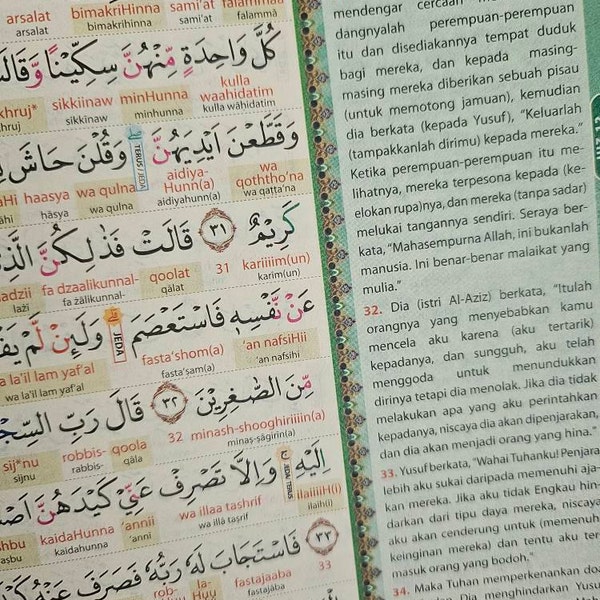 arsalat bimakriHinna sami'at falammaa
arsalat bimakrihinna sami'at falammā
كُلَّ وَاحِدَةٍ مِّنْهُنَّ سِكِّيْنًا وَّقَالَتِ
sikkiinaw minHunna kulla waahidatim
sikkīnaw minhunna kulla wāḥidatim
وَقَطَّعْنَ اَيْدِيَهُنَّ وَقُلْنَ حَاشَ
TERUS/JEDA
haasya wa qulna aidiya-Hunn(a) wa qoththo'na
ḥāsya wa qulna aidiyahunn(a) wa qaṭṭa'na
كَرِيْمٌ ٣١ قَالَتْ فَذٰلِكُنَّ الَّذِيْ
fa dzaalikunnal- qoolat 31 kariiim(un)
fa żālikunnal- qālat karīm(un)
عَنْ نَّفْسِهٖ فَاسْتَعْصَمَ وَلَىِٕنْ لَّمْ
JEDA
wa la'il lam yaf'al fasta'shom(a) 'an nafsiHii
wa la'il lam yaf'al fasta'ṣam(a) 'an nafsihī
مِّنَ الصّٰغِرِيْنَ ٣٢ قَالَ رَبِّ
sij*nu robbis- qoola 32 minash-shooghiriiin(a)
sijnu rabbis- qāla minaṣ-ṣāgirīn(a)
اِلَيْهِ وَاِلَّا تَصْرِفْ عَنِّيْ كَيْدَهُنَّ
JEDA/TERUS
kaidaHunna 'annii wa illaa tashrif ilaiiiH(i)
kaidahunna 'annī wa illā taṣrif ilaih(i)
٣٣ فَاسْتَجَابَ لَهٗ رَبُّهٗ فَصَرَفَ عَنْهُ
fastajaaba 33
mendengar cercaan
dangnyalah perempuan-perempuan
itu dan disediakannya tempat duduk
bagi mereka, dan kepada masing-
masing mereka diberikan sebuah pisau
(untuk memotong jamuan), kemudian
dia berkata (kepada Yusuf), "Keluarlah
(tampakkanlah dirimu) kepada mereka."
Ketika perempuan-perempuan itu me-
lihatnya, mereka terpesona kepada (ke-
elokan rupa)nya, dan mereka (tanpa sadar)
melukai tangannya sendiri. Seraya ber-
kata, "Mahasempurna Allah, ini bukanlah
manusia. Ini benar-benar malaikat yang
mulia."
32. Dia (istri Al-Aziz) berkata, "Itulah
orangnya yang menyebabkan kamu
mencela aku karena (aku tertarik)
kepadanya, dan sungguh, aku telah
menggoda untuk menundukkan
dirinya tetapi dia menolak. Jika dia tidak
melakukan apa yang aku perintahkan
kepadanya, niscaya dia akan dipenjarakan,
dan dia akan menjadi orang yang hina."
33. Yusuf berkata, "Wahai Tuhanku! Penjara
lebih aku sukai daripada memenuhi aja-
kan mereka. Jika aku tidak Engkau hin-
darkan dari tipu daya mereka, niscaya
aku akan cenderung untuk (memenuhi
keinginan mereka) dan tentu aku ter-
masuk orang yang bodoh."
34. Maka Tuhan memperkenankan doa
dan Dia menghindarkan Yusuf